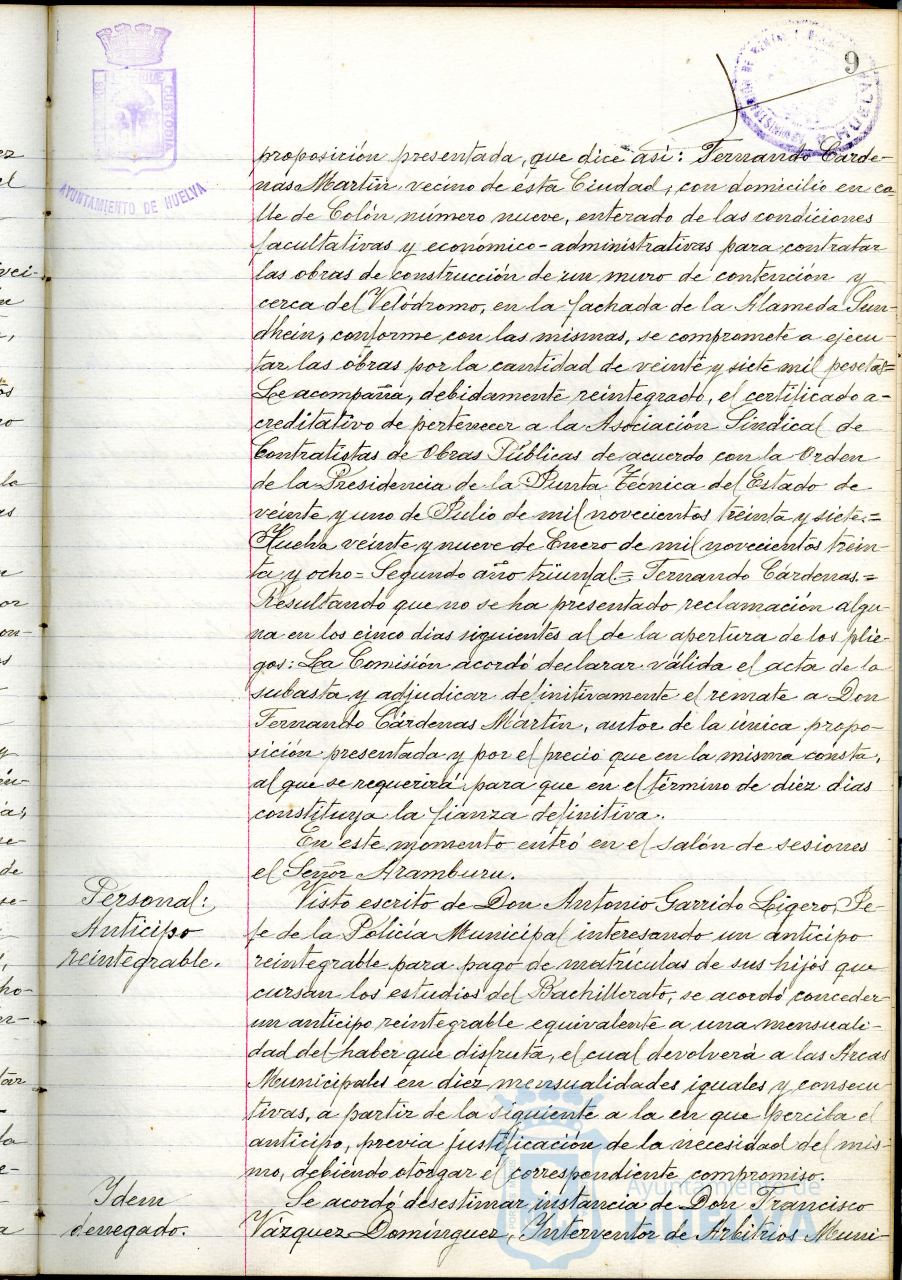 9
AYUNTAMIENTO DE HUELVA
proposición presentada, que dice así: Fernando Cárde-
nas Martín vecino de ésta Ciudad, con domicilio en ca-
lle de Colón número nueve, enterado de las condiciones
facultativas y económico-administrativas para contratar
las obras de construcción de un muro de contención y
cerca del Velódromo, en la fachada de la Alameda Sun-
dhein, conforme con las mismas, se compromete a ejecu-
tar las obras por la cantidad de veinte y siete mil pesetas=
Se acompaña, debidamente reintegrado, el certificado a-
creditativo de pertenecer a la Asociación Sindical de
Contratistas de Obras Públicas de acuerdo con la Orden
de la Presidencia de la Junta Técnica del Estado de
veinte y uno de Julio de mil novecientos treinta y siete.=
Huelva veinte y nueve de Enero de mil novecientos trein-
ta y ocho= Segundo año triunfal= Fernando Cárdenas.=
Resultando que no se ha presentado reclamación algu-
na en los cinco dias siguientes al de la apertura de los plie-
gos: La Comisión acordó declarar válida el acta de la
subasta y adjudicar definitivamente el remate a Don
Fernando Cárdenas Martín, autor de la única propo-
sición presentada y por el precio que en la misma consta,
al que se requerirá para que en el término de diez dias
constituya la fianza definitiva.
En este momento entró en el salón de sesiones
el Señor Aramburu.
Personal:
Anticipo
reintegrable.
Visto escrito de Don Antonio Garrido Ligero, Je-
fe de la Policia Municipal interesando un anticipo
reintegrable para pago de matrículas de sus hijos que
cursan los estudios del Bachillerato, se acordó conceder
un anticipo reintegrable equivalente a una mensuali-
dad del haber que disfruta, el cual devolverá a las Arcas
Municipales en diez mensualidades iguales y consecu-
tivas, a partir de la siguiente a la en que perciba el
anticipo, previa justificación de la necesidad del mis-
mo, debiendo otorgar el correspondiente compromiso.
Idem
denegado.
Se acordó desestimar instancia de Don Francisco
Vázquez Domínguez, Interventor de Arbitrios Muni-
Ayuntamiento de
HUELVA